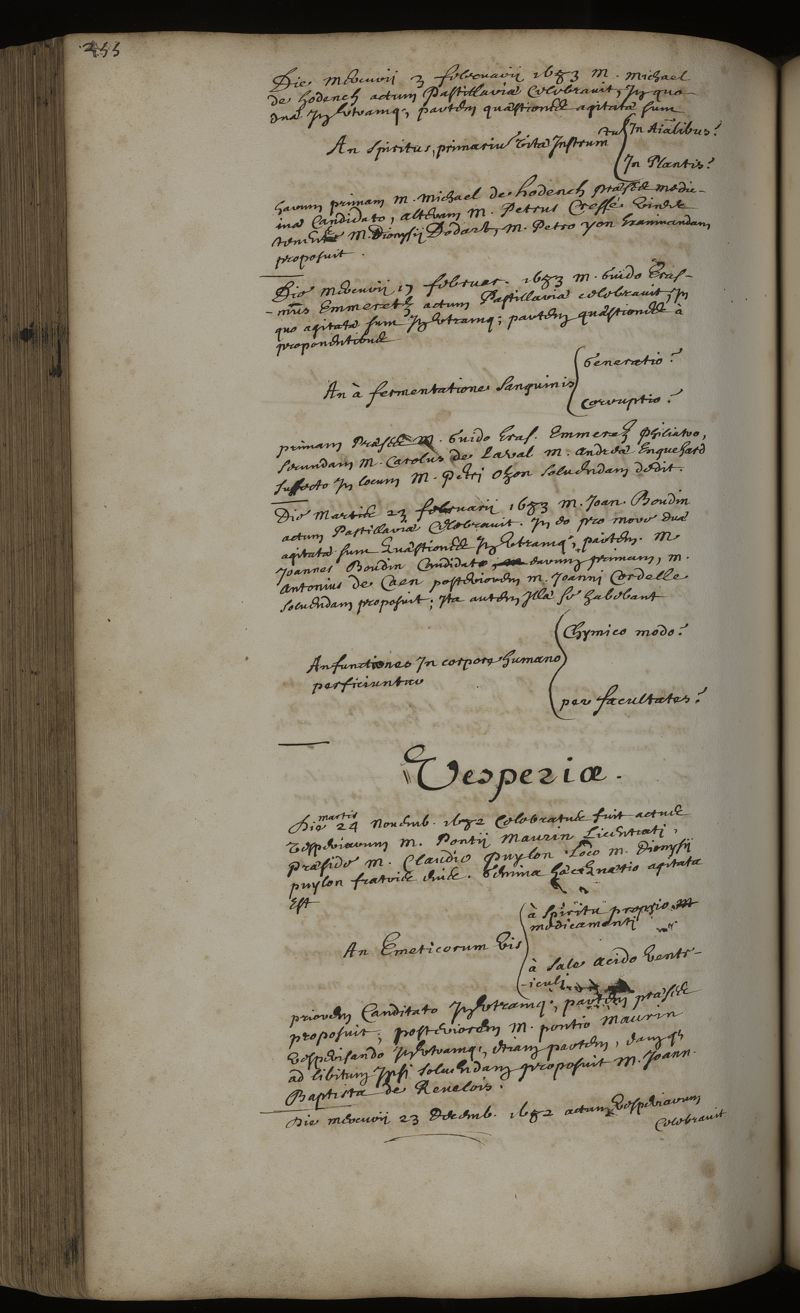 255
Die Mercurij 3 februarij 1683 M. Michael
de Hodench actum Pastillariæ Celebravit, In quo
duæ In utramq; partem quæstiones agitatæ sunt
An spiritus, primariu Vitæ Instrumtu In Aĩalibus?
In Plantis?
harum primam M. Michael de hodench præses medic-
inæ Candidato, alteram M. Petrus Cressé
M. Dionysij Dodart, M. Petro yon Examinandam
proposuit.
Die Mercurij 17 februar. 1683 M. Guido Eras-
-mus Emmeretz actum Pastillariæ celebravit, In
quo agitatæ sunt In utramq; partem quæstiones à
proponentibus
An à fermentatione Sanguinis
Generatio?
Corruptio?
primam Præses M. Guido Eras. Emmeretz Philiatro,
secundam M. Carolus de Laval M. Andreæ Enguehard
suffecto In locum M. Petri Ozon soluendam dedit.
Die Martis 23 februarij 1683 M. Joan. Boudin
actum Pastillariæ Celebravit. In eo pro more duæ
agitatæ sunt quæstiones In utramq; partem. M
Joannes Boudin Candidato earum primam, M.
Antonius de Caen posteriorem M. Joanni Cordelle
soluendam proposuit; Ita autem Illæ se habebant
An functiones In corpore humano
perficiuntur
Chymico modo?
per facultates?
Vesperiæ.
Die martis 24 Novemb. 1682 Celebratus fuit actus
vesperiarum M. Pontij Maurin Licentiati,
Præside M. Claudio Puylon Loco M. Dionysij
puylon fratris eius. Gemina hæc quæstio agitata
Est
An Emeticorum vis
à spiritu proprio
medicamenti
à sale acido ventr-
-iculi
priorem Canditato In utramq; partem præses
proposuit; posteriorem M. pontio Maurin
vesperisando In utramq, etiam partem, eamq;
ad libitum Ipsi soluendam proposuit M. Joann.
Baptista de Revelois.
Die Mercurij 23 Decemb. 1682 actum Vesperiarum
Celebravit